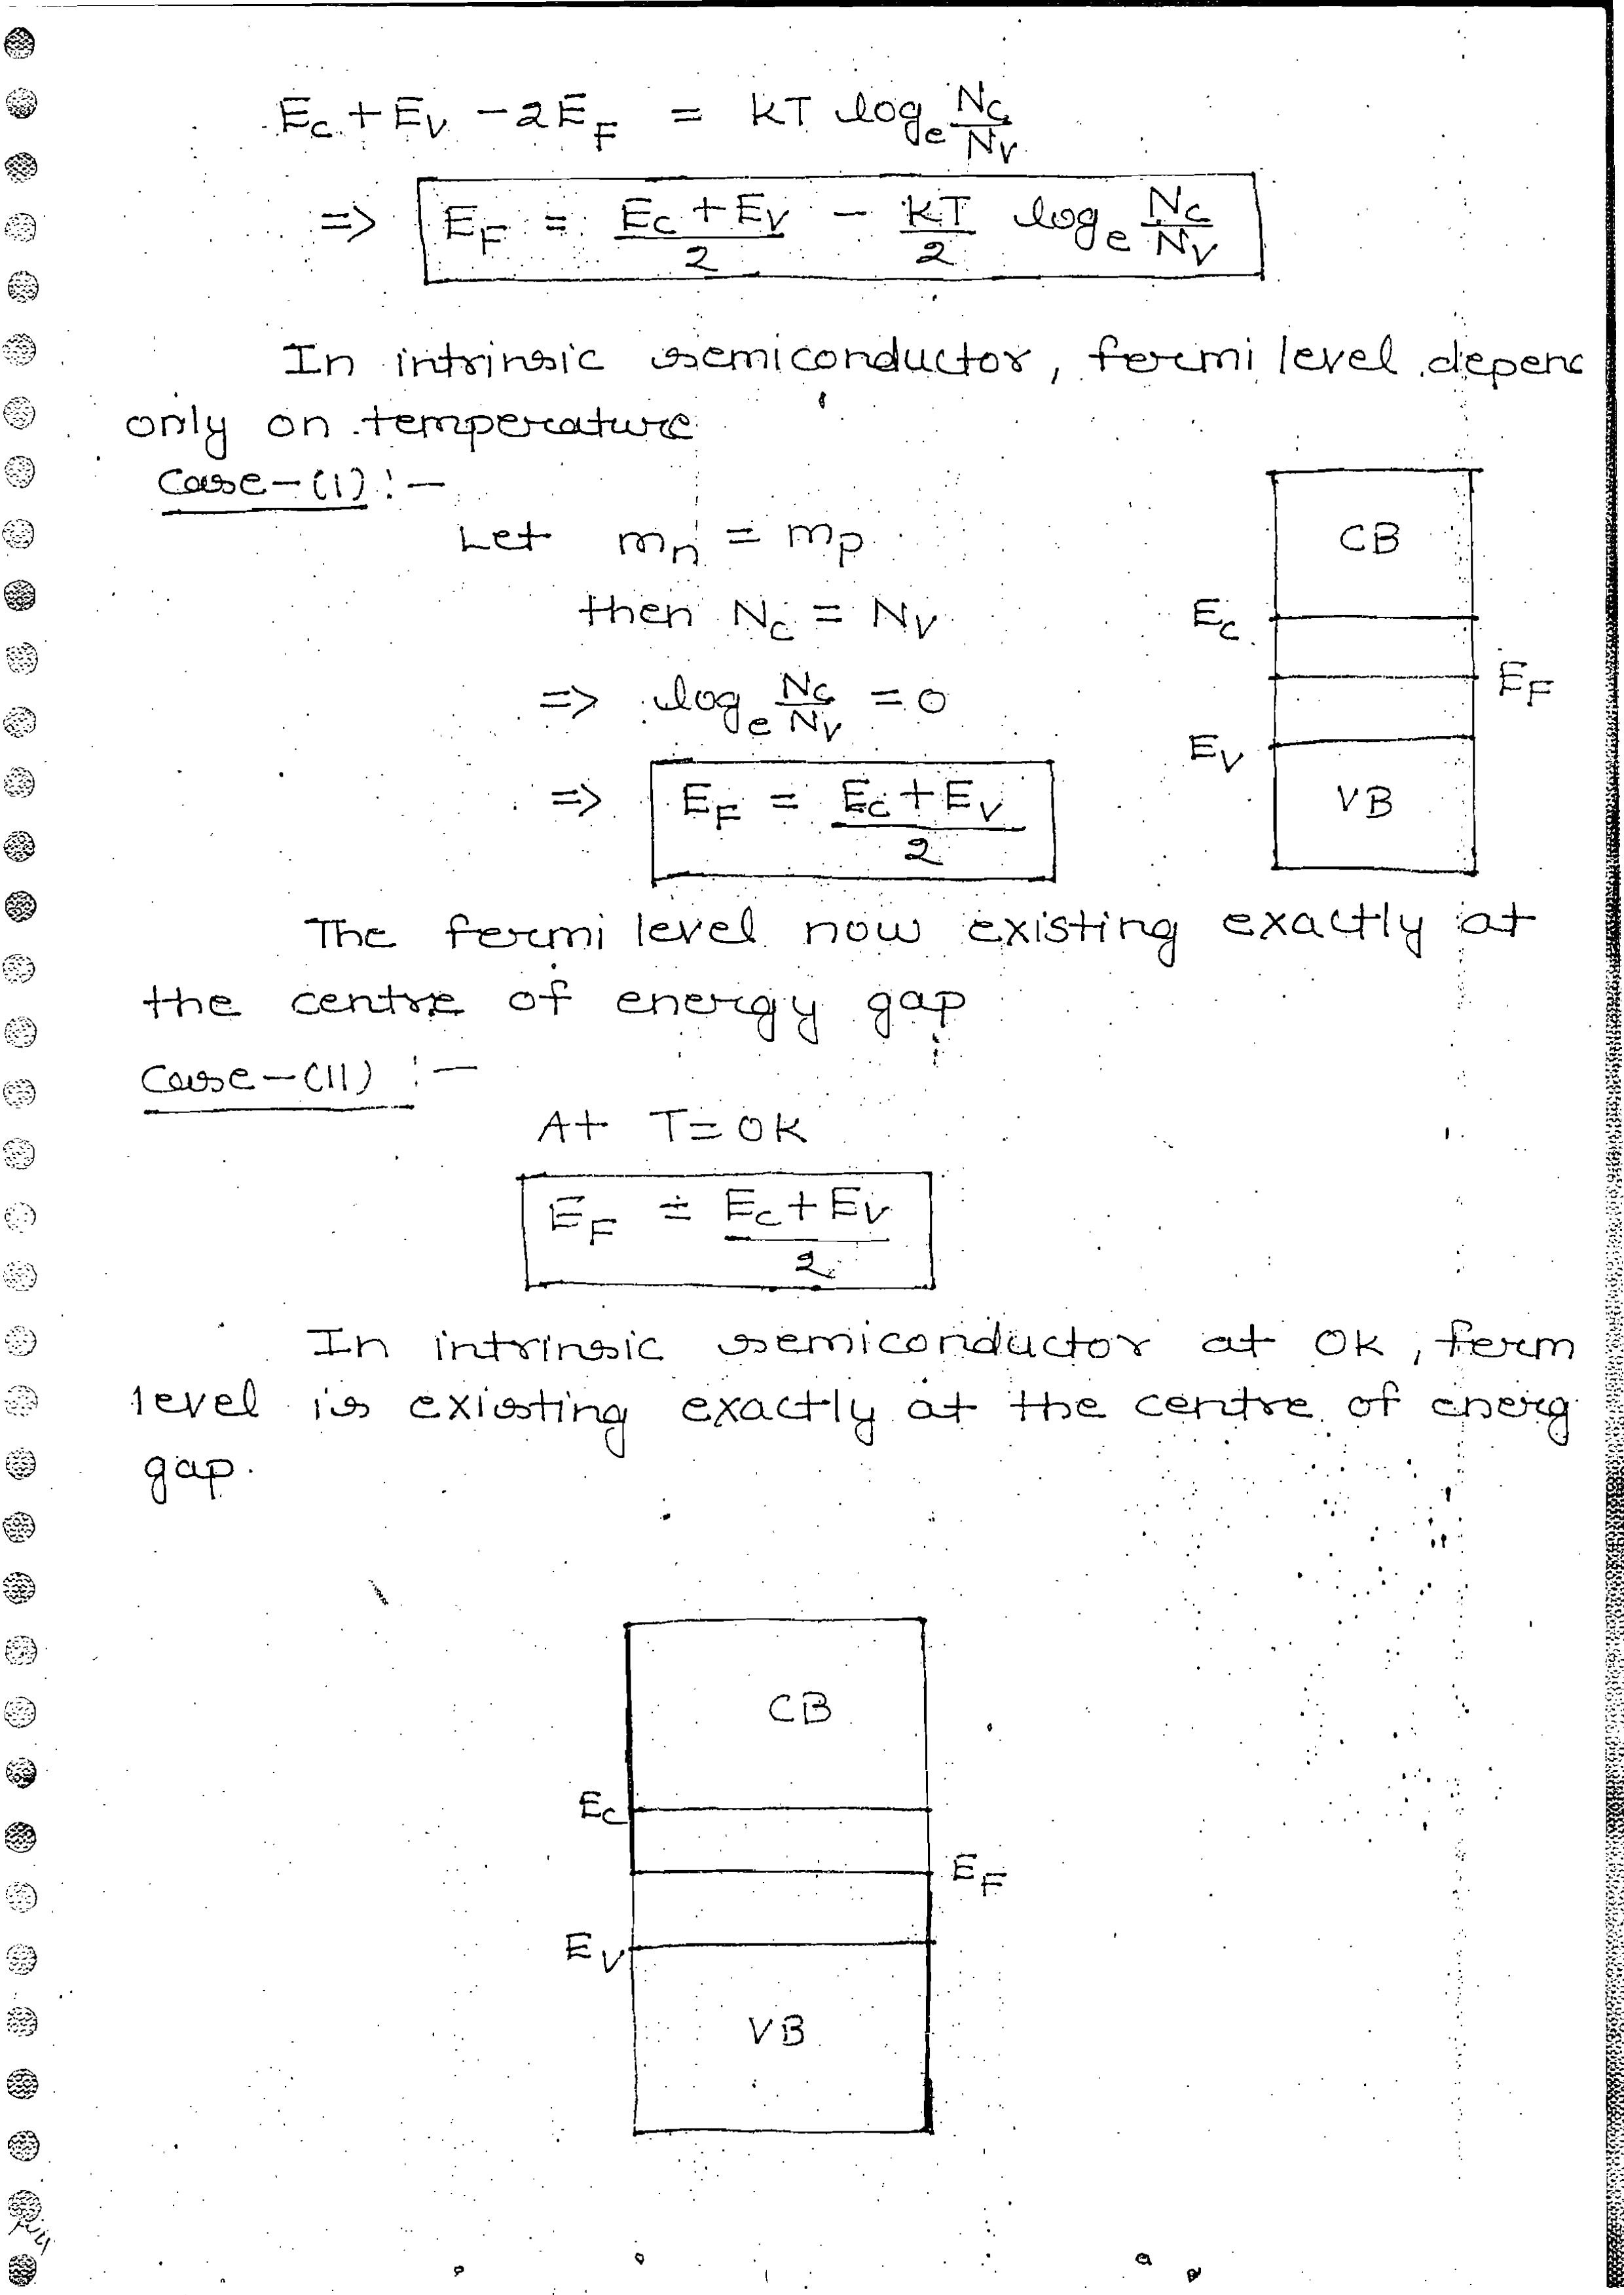 E_C + E_V - 2E_F = KT log_e N_C/N_V
=> E_F = (E_C + E_V)/2 - KT/2 log_e N_C/N_V
In intrinsic semiconductor, fermi level depend
only on temperature
Case-(I) :-
Let m_n = m_p
then N_C = N_V
=> log_e N_C/N_V = 0
=> E_F = (E_C + E_V)/2
CB
E_C
E_F
E_V
VB
The fermi level now existing exactly at
the centre of energy gap
Case-(II) :-
At T = 0K
E_F = (E_C + E_V)/2
In intrinsic semiconductor at 0K, ferm
level is existing exactly at the centre of energ
gap.
CB
E_C
E_F
E_V
VB